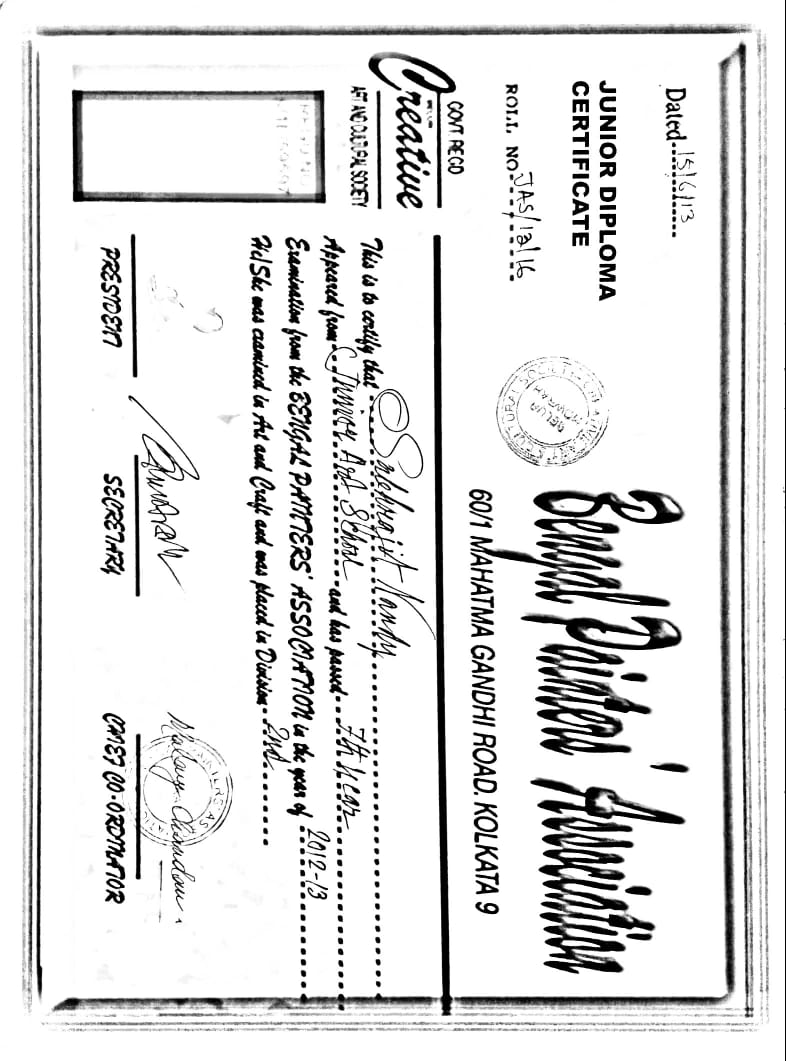 Dated 15/6/13
JUNIOR DIPLOMA
CERTIFICATE
ROLL NO JAS/12/16
Bengal Painters' Association
60/1 MAHATMA GANDHI ROAD. KOLKATA 9
BELUR
HOWRAH
GOVT. REGD
Creative
ART AND CULTURAL SOCIETY
REGD NO.
This is to certify that Subhrajit Nandy
Appeared from Junior Art School and has passed 7th year
Examination from the BENGAL PAINTERS' ASSOCIATION in the year of 2012-13
He/She was examined in Art and Craft and was placed in Division 2nd
Malay Chandan
PRESIDENT
SECRETARY
CHIEF CO-ORDINATOR